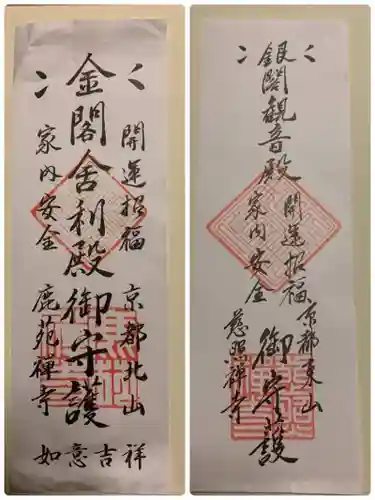 金閣舎利殿御守護
開運招福 京都北山
家内安全 鹿苑禅寺
如意吉祥
銀閣観音殿
御守護
開運招福
京都東山
家内安全
慈照禅寺